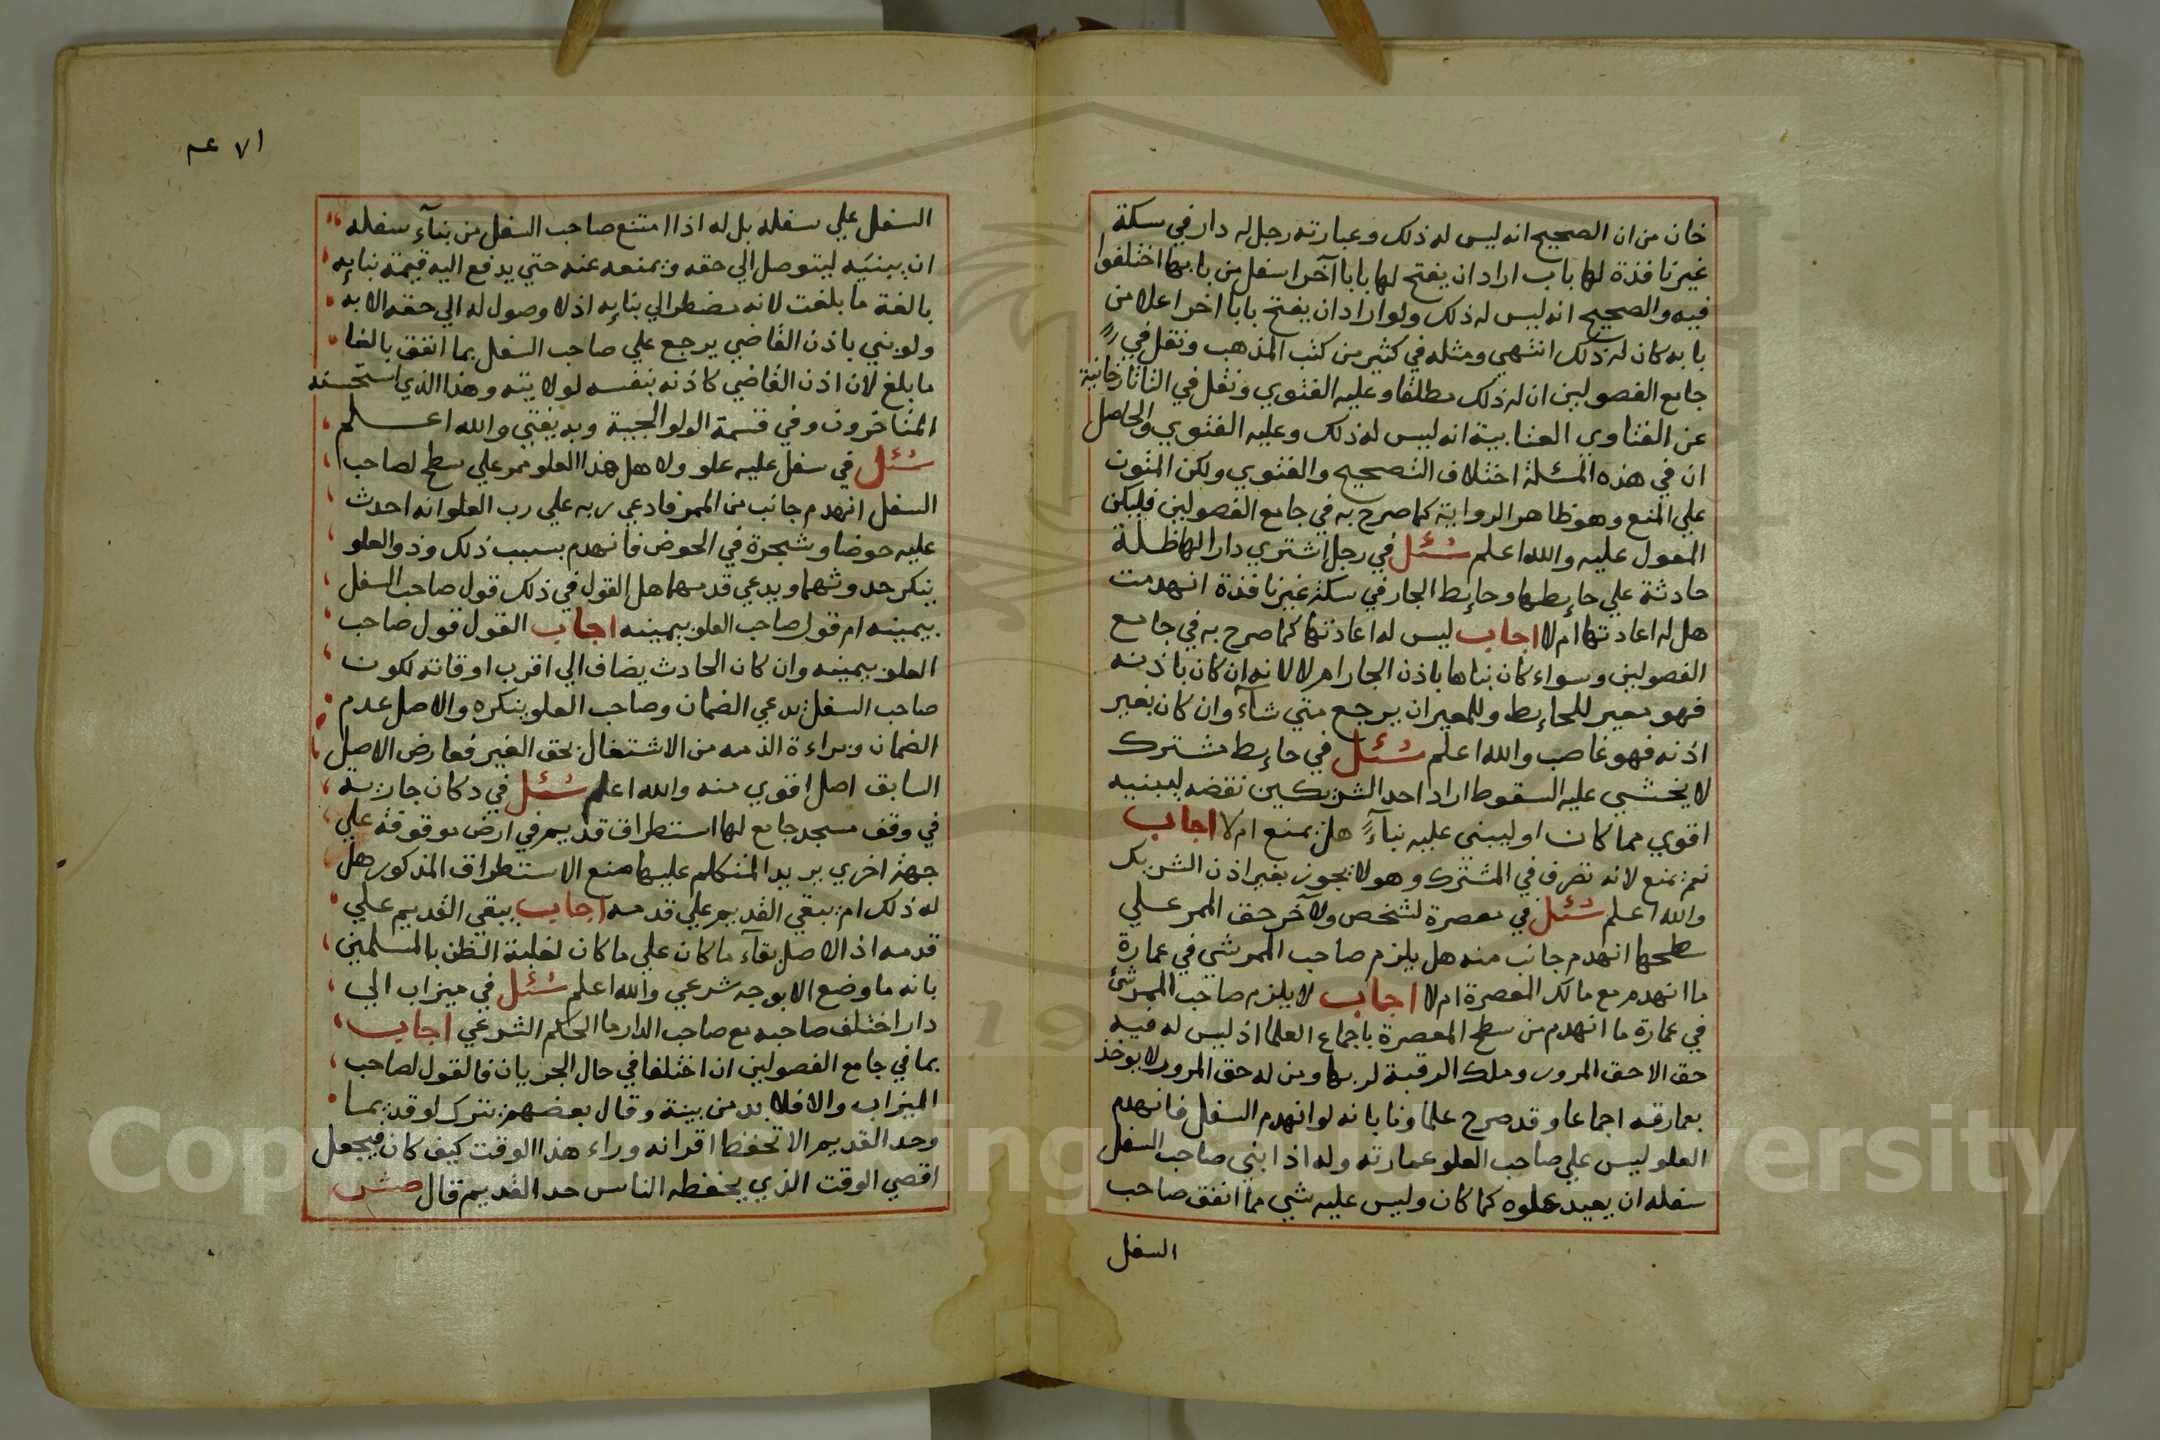 خان من ان الصحيح انه ليس له ذلك وعبارته رجل له دار في سكة
غير نافذة لها باب اراد ان يفتح لها بابا آخر اسفل من بابها اختلفوا
فيه والصحيح انه ليس له ذلك ولو اراد ان يفتح بابا اخر اعلا من
بابه كان له ذلك انتهي ومثله في كثير من كتب المذهب ونقل في
جامع الفصولين ان له ذلك مطلقا وعليه الفتوي ونقل في التاتارخانية
عن الفتاوي العتابية انه ليس له ذلك وعليه الفتوي والحاصل
ان في هذه المسئلة اختلاف التصحيح والفتوي ولكن المتون
علي المنع وهو ظاهر الرواية كما صرح به في جامع الفصولين فليكن
المعول عليه والله اعلم سُئل في رجل اشتري دارا لها ظلة
حادثة علي حايطها وحايط الجار في سكة غير نافذة انهدمت
هل له اعادتها ام لا اجاب ليس له اعادتها كما صرح به في جامع
الفصولين وسواء كان بناها باذن الجار ام لا لانه ان كان باذنه
فهو معير للحايط وللمعير ان يرجع متي شآء وان كان بغير
اذنه فهو غاصب والله اعلم سُئل في حايط مشترك
لا يخشي عليه السقوط اراد احد الشريكين نقضه ليبنيه
اقوي مما كان او ليبني عليه بنآءً هل يمنع ام لا اجاب
نعم يمنع لانه تصرف في المشترك وهو لا يجوز بغير اذن الشريك
والله اعلم سُئل في معصرة لشخص ولآخر حق الممر علي
سطحها انهدم جانب منه هل يلزم صاحب الممر شي في عمارة
ما انهدم مع مالك المعصرة ام لا اجاب لا يلزم صاحب الممر شئ
في عمارة ما انهدم من سطح المعصرة باجماع العلما اذ ليس له فيه
حق الا حق المرور وملك الرقبة لربها ومن له حق المرور لا يوخذ
بعمارته اجماعا وقد صرح علماونا بانه لو انهدم السفل فانهدم
العلو ليس علي صاحب العلو عمارته وله اذا بني صاحب السفل
سفله ان يعيد علوه كما كان وليس عليه شي مما انفق صاحب
السفل
٧١ عـم
السفل علي سفله بل له اذا امتنع صاحب السفل من بنآء سفله
ان يبنيه ليتوصل الي حقه ويمنعه عنه حتي يدفع اليه قيمة بنايه
بالغة ما بلغت لانه مضطر الي بنايه اذ لا وصول له الي حقه الا به
ولو بني باذن القاضي يرجع علي صاحب السفل بما انفق بالغا
ما بلغ لان اذن القاضي كاذنه بنفسه لولايته وهذا الذي استحسنه
المتاخرون وفي قسمة الولوالجية وبه يفتي والله اعلم
سُئل في سفل عليه علو ولاهل هذا العلو ممر علي سطح لصاحب
السفل انهدم جانب من الممر فادعي ربه علي رب العلو انه احدث
عليه حوضا وشجرة في الحوض فانهدم بسبب ذلك وذو العلو
ينكر حدوثهما ويدعي قدمهما هل القول في ذلك قول صاحب السفل
بيمينه ام قول صاحب العلو بيمينه اجاب القول قول صاحب
العلو بيمينه وان كان الحادث يضاف الي اقرب اوقاته لكون
صاحب السفل يدعي الضمان وصاحب العلو ينكره والاصل عدم
الضمان وبراءة الذمه من الاشتغال بحق الغير فعارض الاصل
السابق اصل اقوي منه والله اعلم سُئل في دكان جارية
في وقف مسجد جامع لها استطراق قديم في ارض موقوفة علي
جهة اخري يريد المتكلم عليها منع الاستطراق المذكور هل
له ذلك ام يبقي القديم علي قدمه اجاب يبقي القديم علي
قدمه اذ الاصل بقآء ما كان علي ما كان لغلبة الظن بالمسلمين
بانه ما وضع الا بوجه شرعي والله اعلم سُئل في ميزاب الي
دار اختلف صاحبه مع صاحب الدار ما الحكم الشرعي اجاب
بما في جامع الفصولين ان اختلفا في حال الجريان فالقول لصاحب
الميزاب والا فلا بد من بينة وقال بعضهم يترك لو قديما
وحد القديم الا تحفظ اقرانه وراء هذا الوقت كيف كان فيجعل
اقصي الوقت الذي يحفظه الناس حد القديم قال